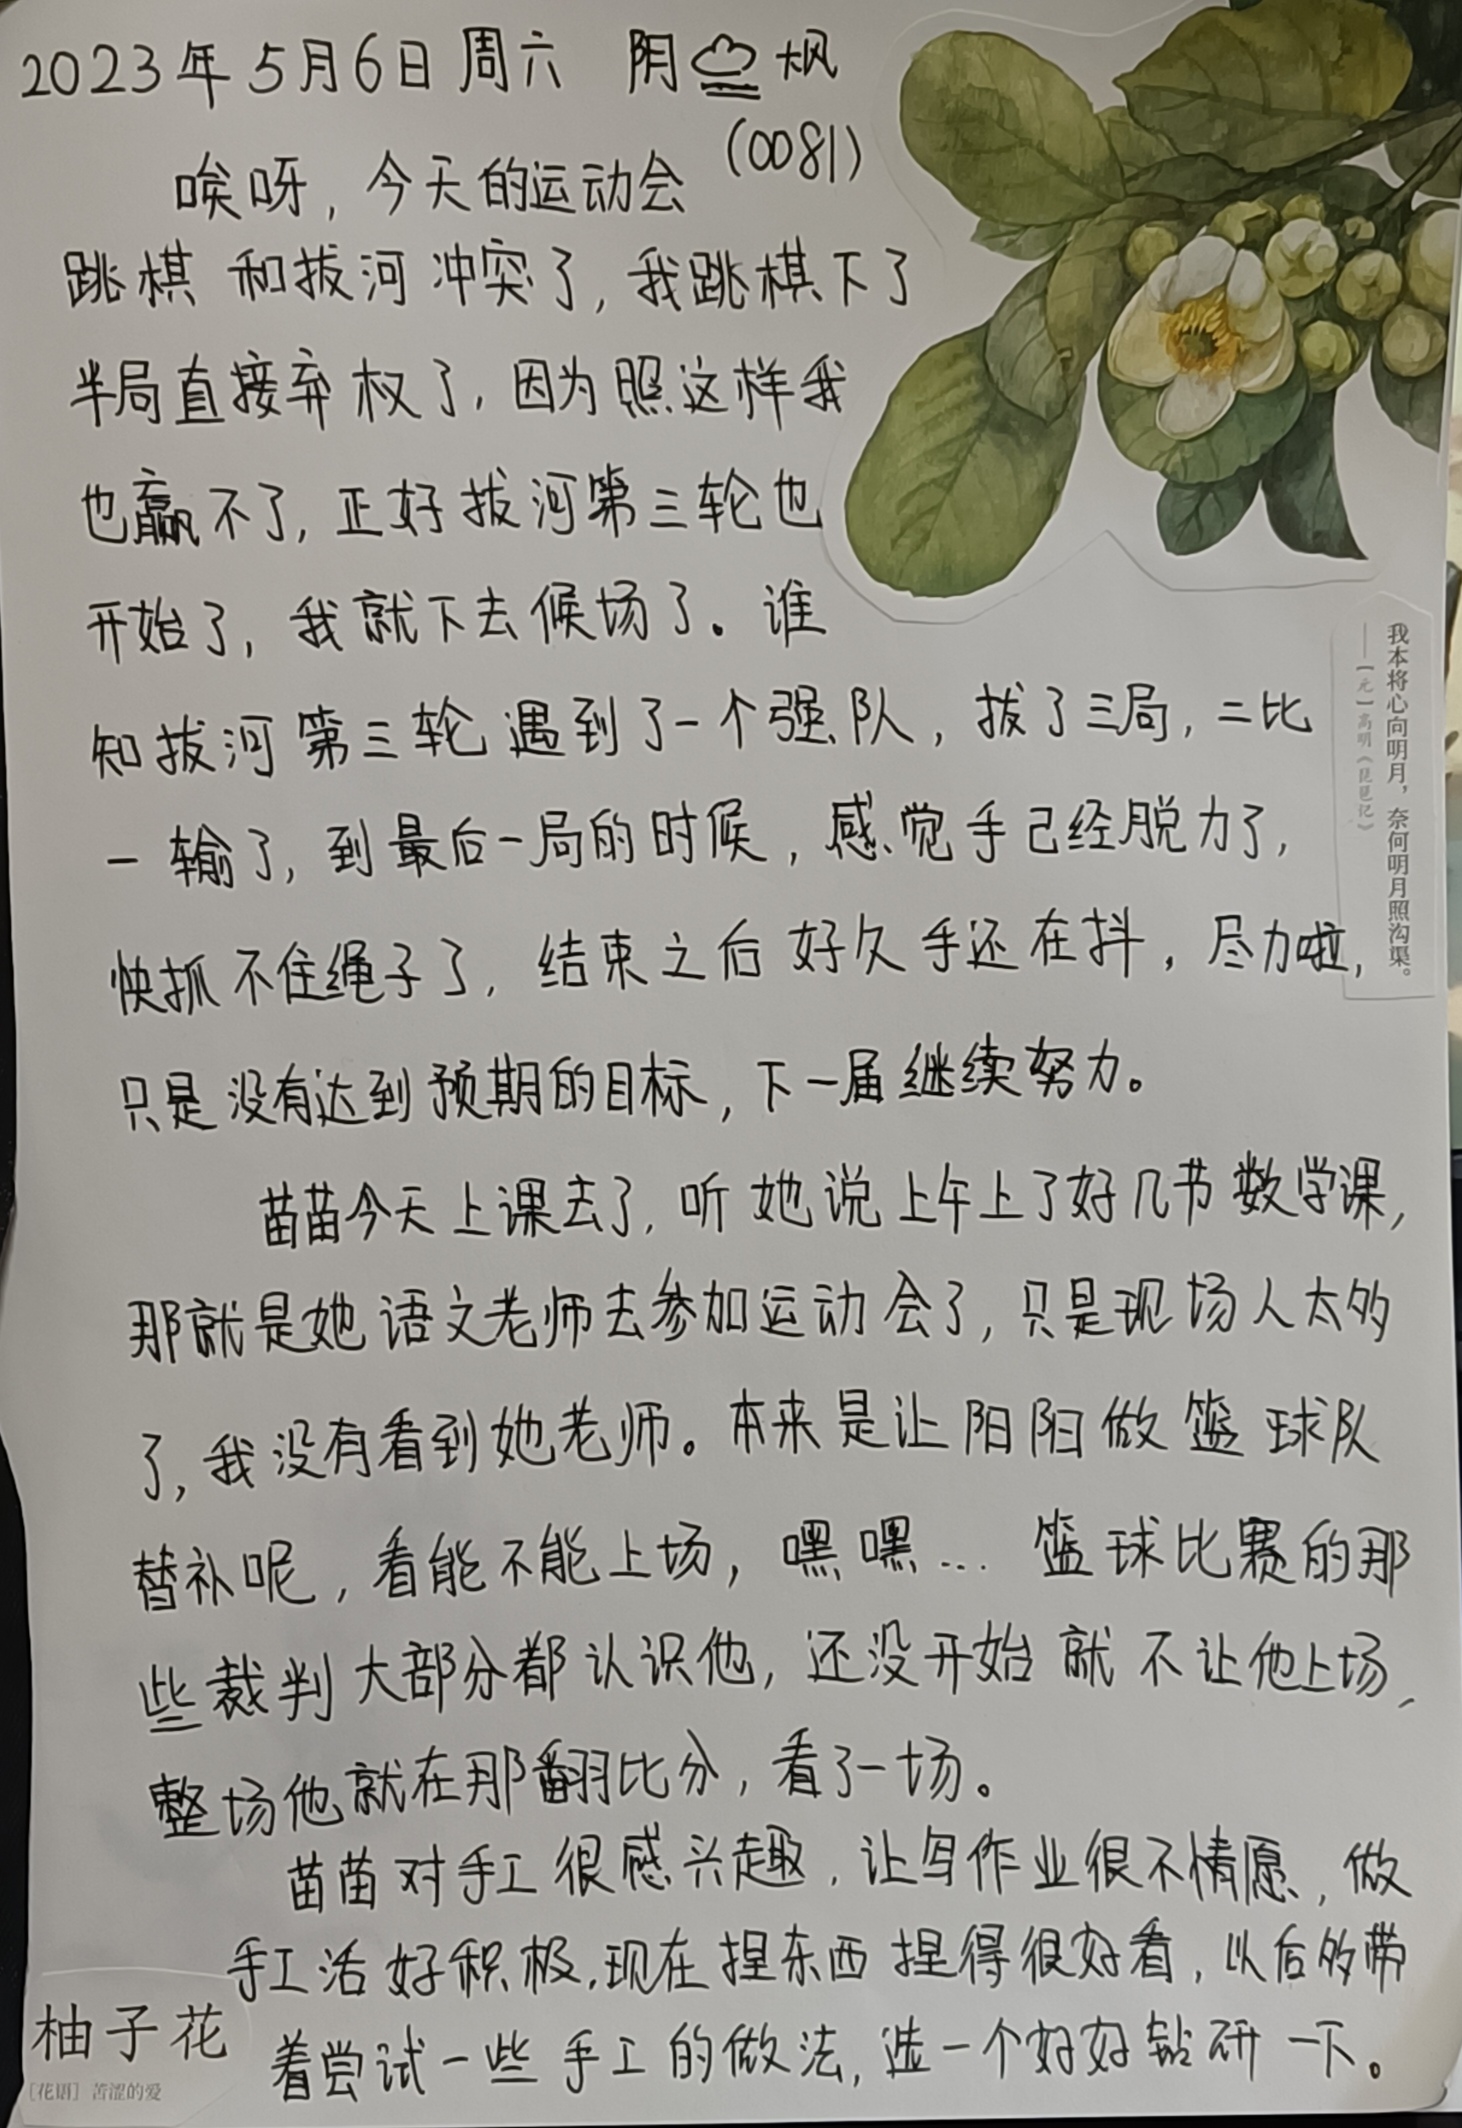 2023年5月6日 周六 阴 大风
(0081)
唉呀，今天的运动会
跳棋和拔河冲突了，我跳棋下了
半局直接弃权了，因为照这样我
也赢不了，正好拔河第三轮也
开始了，我就下去候场了。谁
知拔河第三轮遇到了一个强队，拔了三局，二比
一输了，到最后一局的时候，感觉手已经脱力了，
快抓不住绳子了，结束之后好久手还在抖，尽力啦，
只是没有达到预期的目标，下一届继续努力。
苗苗今天上课去了，听她说上午上了好几节数学课，
那就是她语文老师去参加运动会了，只是现场人太多
了，我没有看到她老师。本来是让阳阳做篮球队
替补呢，看能不能上场，嘿嘿… 篮球比赛的那
些裁判大部分都认识他，还没开始就不让他上场，
整场他就在那翻比分，看了一场。
苗苗对手工很感兴趣，让写作业很不情愿，做
手工活好积极，现在捏东西捏得很好看，以后多带
着尝试一些手工的做法，选一个好好钻研一下。
我本将心向明月，奈何明月照沟渠。
——［元］高明《琵琶记》
柚子花
［花语］苦涩的爱